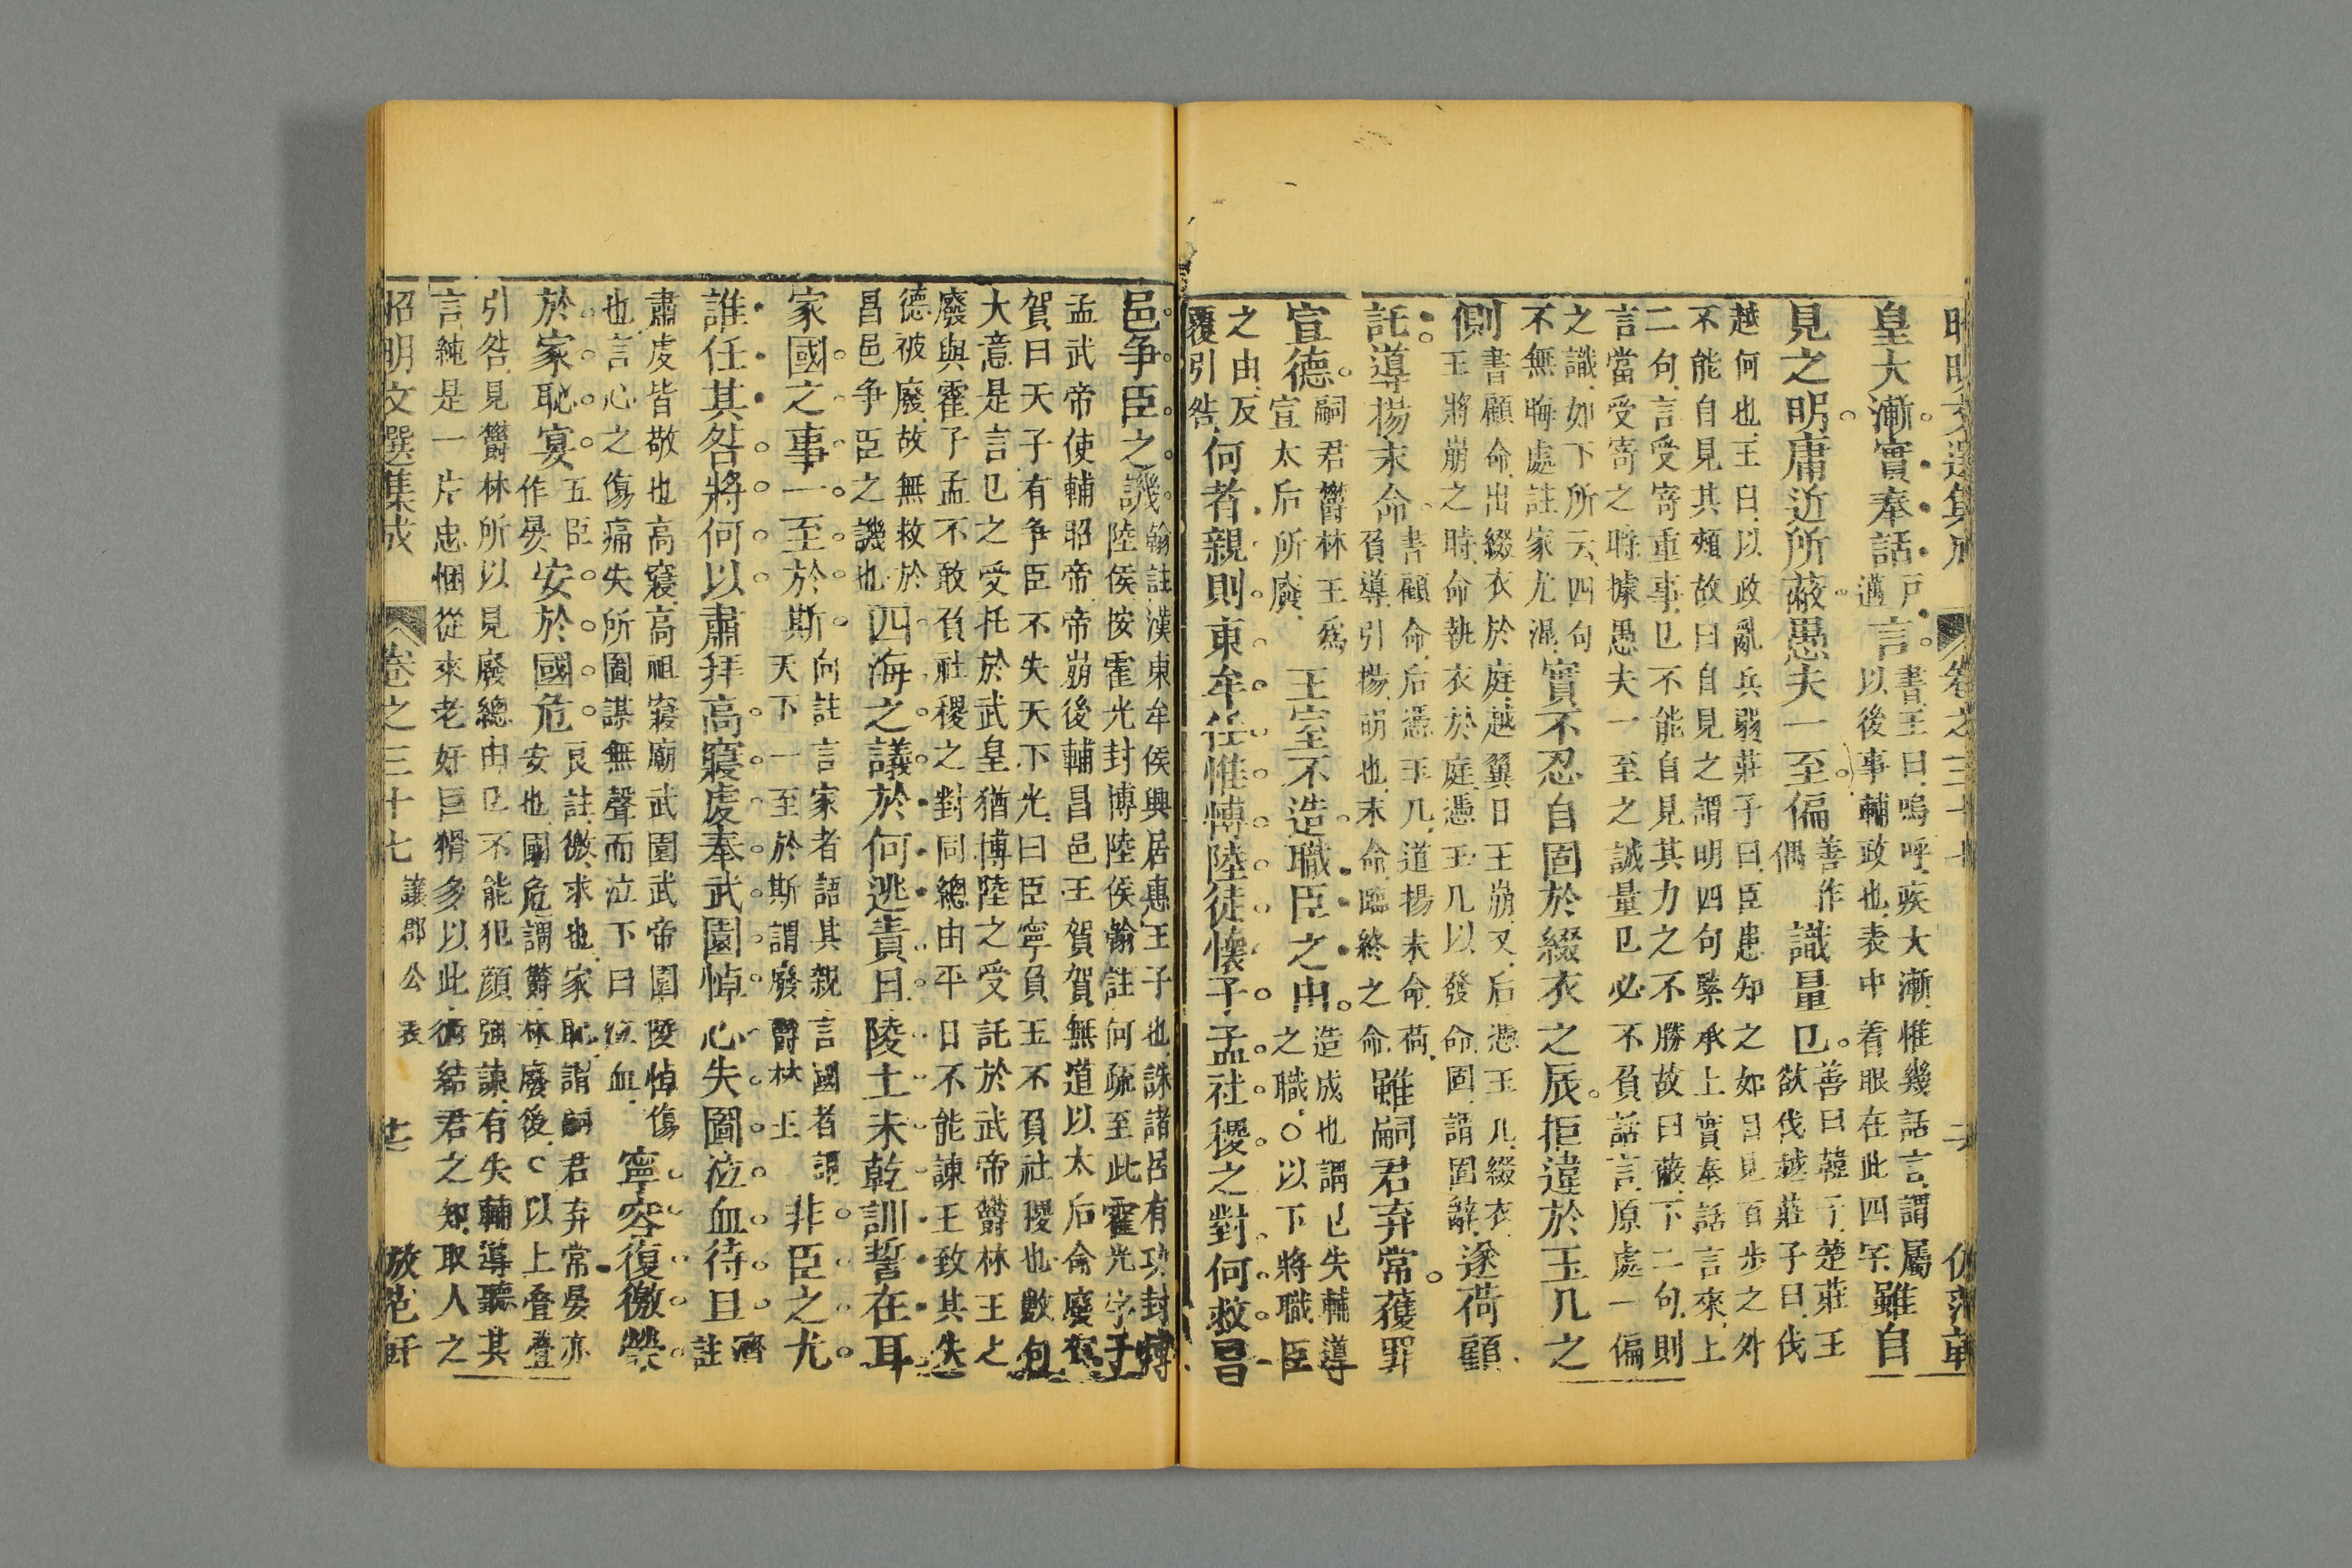 昭明文選集成 卷之三十七
皇大漸實奉話戶邁言書王曰嗚呼疾大漸惟幾話言謂屬以後事輔政也表中着眼在此四字雖自
見之明庸近所蔽愚夫一至偏善作偶識量已善曰韓子楚莊王欲伐越莊子曰伐
越何也王曰以政亂兵弱莊子曰臣患知之如目見百步之外
不能自見其頰故曰自見之謂明四句緊承上實奉話言來上
二句言受寄重事已不能自見其力之不勝故曰蔽下二句則
言當受寄之時據愚夫一至之誠量已必不負話言原處一偏
之識如下所云四句
不無晦處註家尤混實不忍自固於綴衣之辰拒違於玉几之
側書顧命出綴衣於庭越翼日王崩又后憑玉几綴衣王將崩之時命執衣於庭憑玉几以發命固謂固辭遂荷顧
託導揚末命書顧命后憑玉几道揚末命荷負導引揚明也末命臨終之命雖嗣君弃常獲罪
宣德嗣君鬱林王爲宣太后所廢王室不造職臣之由造成也謂已失輔導之職○以下將職臣
之由反
覆引咎何者親則東牟任惟博陸徒懷子孟社稷之對何救昌
邑爭臣之譏翰註漢東牟侯興居惠王子也誅諸呂有功封博陸侯按霍光封博陸侯翰註何疏至此霍光字子
孟武帝使輔昭帝帝崩後輔昌邑王賀賀無道以太后命廢
賀曰天子有爭臣不失天下光曰臣寧負王不負社稷也數句
大意是言已之受托於武皇猶博陸之受託於武帝鬱林王之
廢與霍子孟不敢負社稷之對同總由平日不能諫王致其失
德被廢故無救於
昌邑爭臣之譏也四海之議於何逃責且陵土未乾訓誓在耳
家國之事一至於斯向註言家者語其親言國者謂天下一至於斯謂廢鬱林王非臣之尤
誰任其咎將何以肅拜高寢虔奉武園悼心失圖泣血待旦濟註
肅虔皆敬也高寢高祖寢廟武園武帝園陵悼傷
也言心之傷痛失所圖謀無聲而泣下曰泣血寧容復徼榮
於家恥宴五臣作晏安於國危良註徼求也家恥謂嗣君弃常晏亦安也國危謂鬱林廢後○以上叠叠
引咎見鬱林所以見廢總由已不能犯顏強諫有失輔導聽其
言純是一片忠悃從來老奸巨猾多以此術結君之知取人之
昭明文選集成 卷之三十七 讓郡公表 放范軒